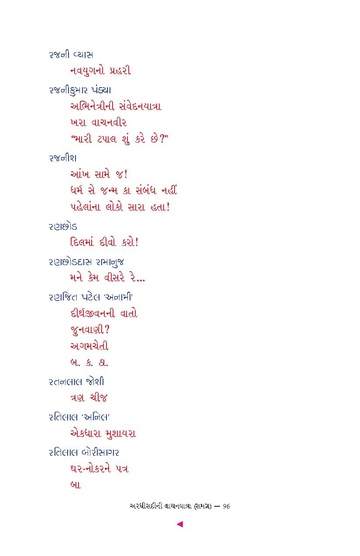 રજની વ્યાસ
નવયુગનો પ્રહરી
રજનીકુમાર પંડ્યા
અભિનેત્રીની સંવેદનયાત્રા
ખરા વાચનવીર
“મારી ટપાલ શું કરે છે?”
રજનીશ
આંખ સામે જ!
ધર્મ સે જન્મ કા સંબંધ નહીં
પહેલાંના લોકો સારા હતા!
રણછોડ
દિલમાં દીવો કરો!
રણછોડદાસ રામાનુજ
મને કેમ વીસરે રે...
રણજિત પટેલ ‘અનામી’
દીર્ઘજીવનની વાતો
જુનવાણી?
અગમચેતી
બ. ક. ઠા.
રતનલાલ જોશી
ત્રણ ચીજ
રતિલાલ ‘અનિલ’
એકધારા મુશાયરા
રતિલાલ બોરીસાગર
ઘર-નોકરને પત્ર
બા
અરધીસદીની વાચનયાત્રા (સમગ્ર) — 96